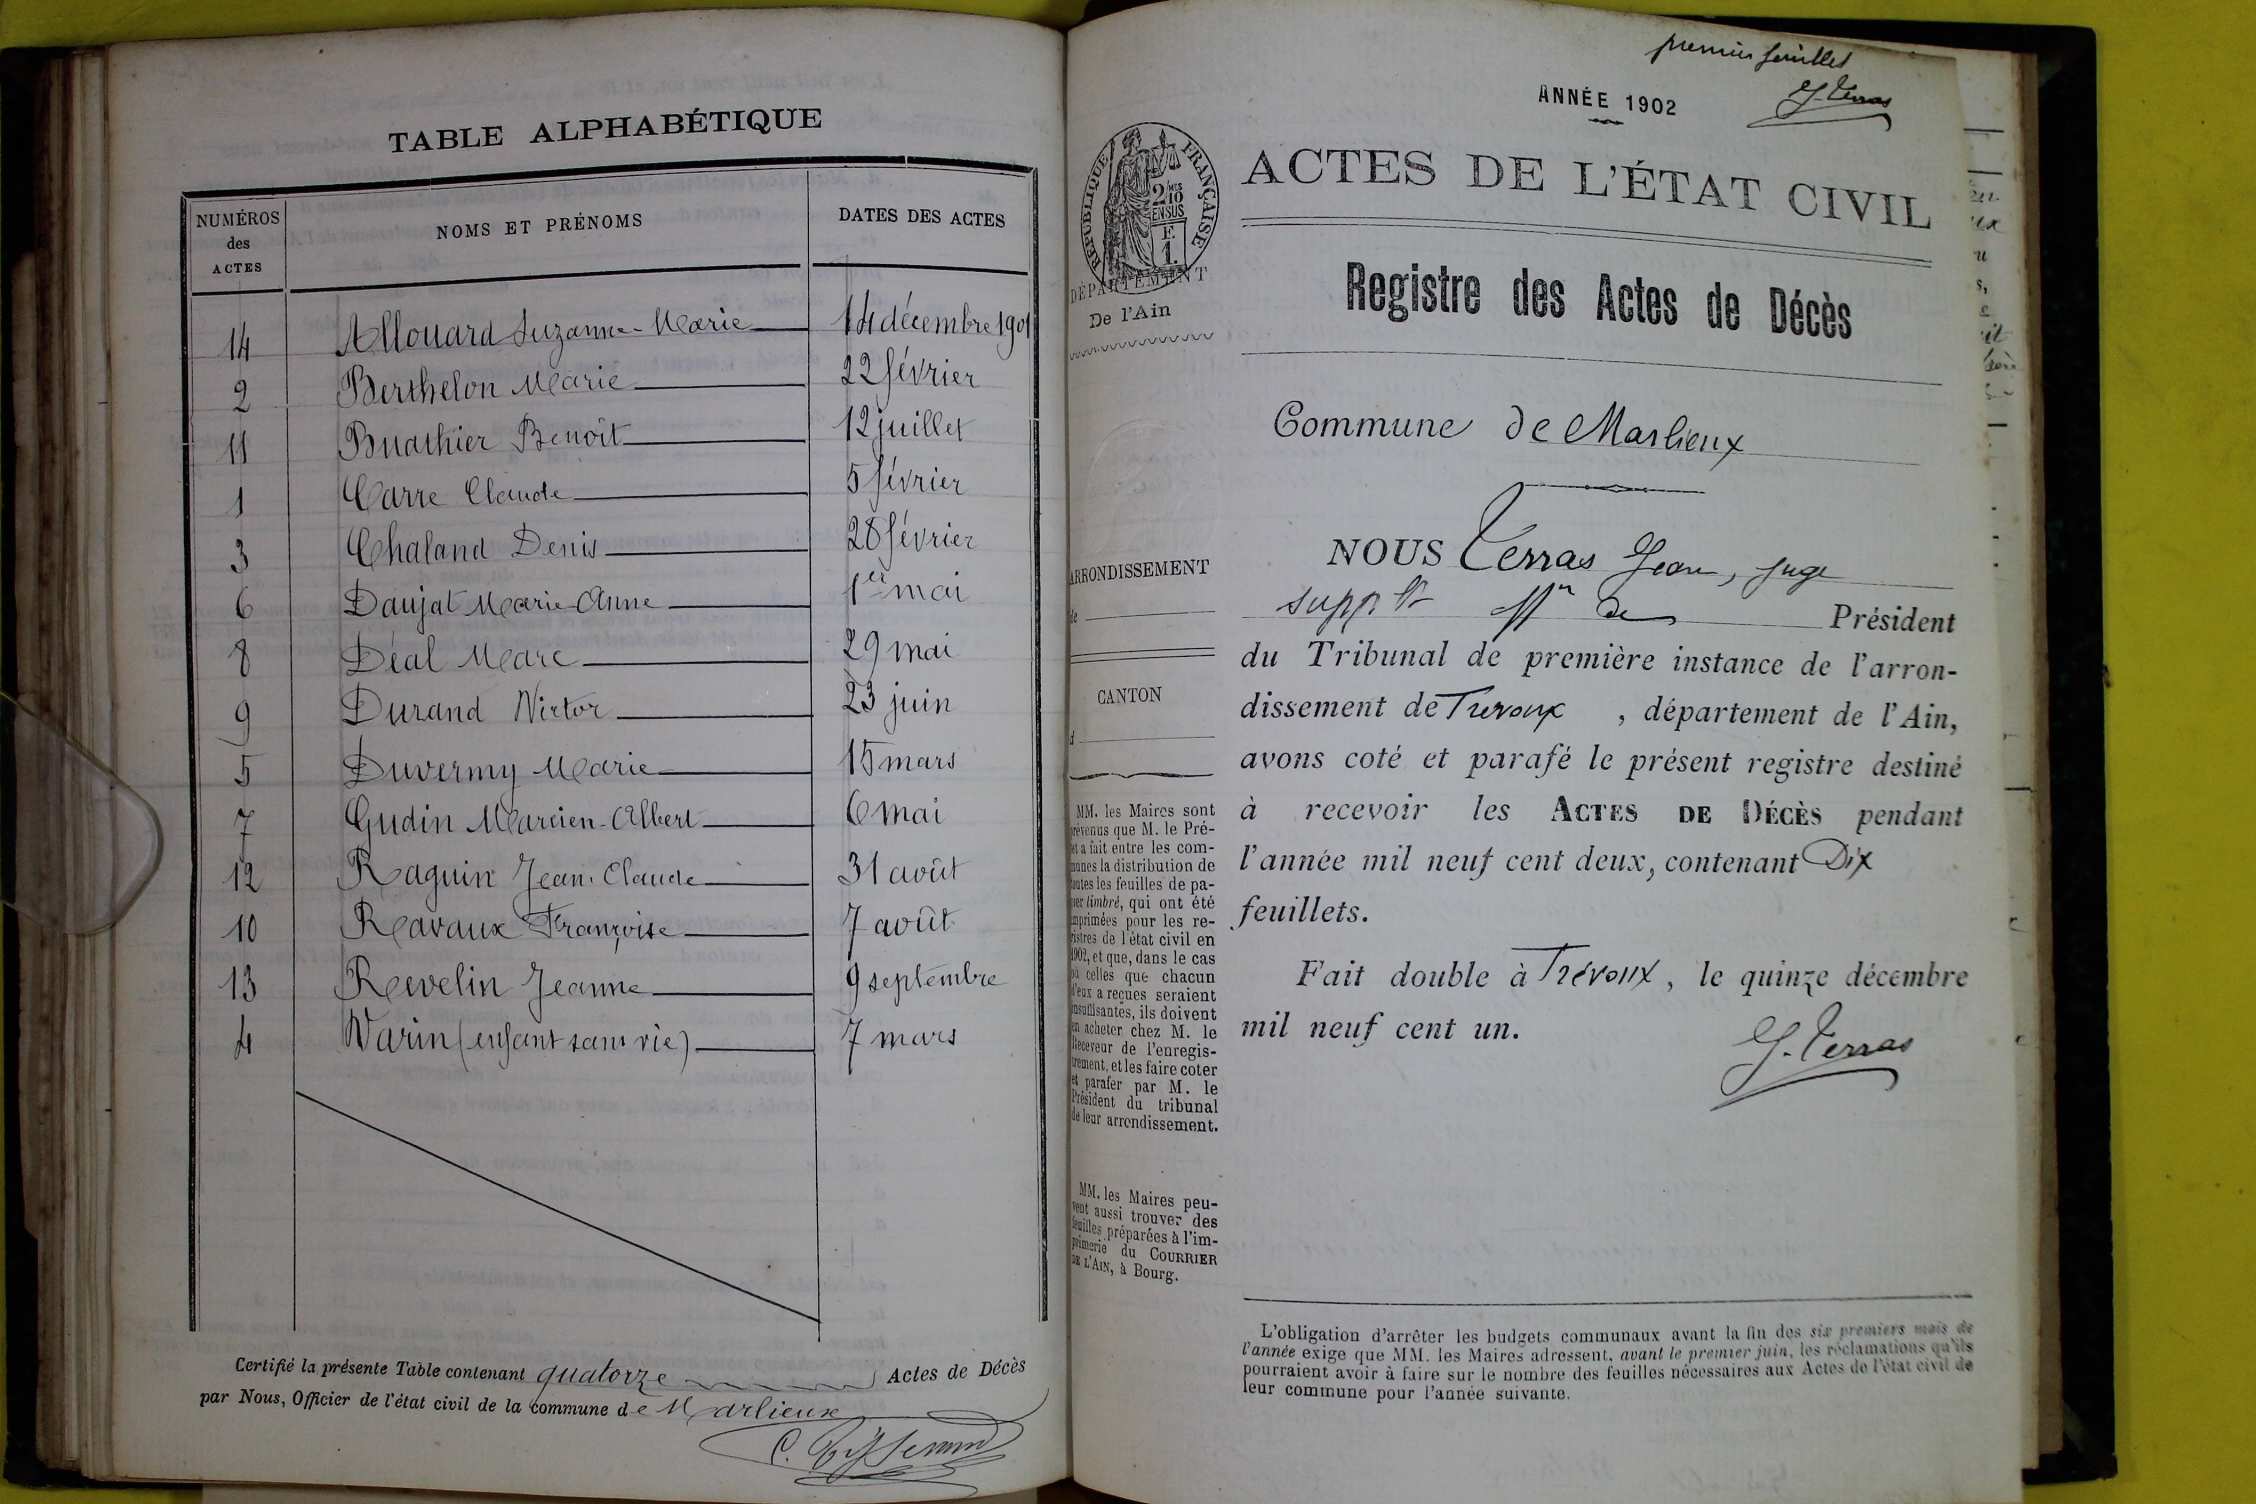 TABLE ALPHABÉTIQUE
NUMÉROS des ACTES NOMS ET PRÉNOMS DATES DES ACTES
14 Allouard Suzanne-Marie 14 décembre 1901
2 Berthelon Marie 22 février
11 Buathier Benoît 12 juillet
1 Carre Claude 5 février
3 Chaland Denis 28 février
6 Daujat Marie-Anne 1er mai
8 Déal Marc 29 mai
9 Durand Victor 23 juin
5 Duvermy Marie 15 mars
7 Gudin Marcien-Albert 6 mai
12 Raguin Jean-Claude 31 août
10 Ravaux Françoise 7 août
13 Revelin Jeanne 9 septembre
4 Varin (enfant sans vie) 7 mars
Certifié la présente Table contenant quatorze Actes de Décès
par Nous, Officier de l'état civil de la commune de Marlieux
premier feuillet
J. Terras
ANNÉE 1902
RÉPUBLIQUE FRANÇAISE
2/10
EN SUS
E.
1.
DÉPARTEMENT
De l'Ain
ACTES DE L'ÉTAT CIVIL
Registre des Actes de Décès
Commune de Marlieux
ARRONDISSEMENT
de
CANTON
d
MM. les Maires sont
prévenus que M. le Pré-
fet a fait entre les com-
munes la distribution de
toutes les feuilles de pa-
pier timbré, qui ont été
imprimées pour les re-
gistres de l'état civil en
1902, et que, dans le cas
où celles que chacun
d'eux a reçues seraient
insuffisantes, ils doivent
en acheter chez M. le
Receveur de l'enregis-
trement, et les faire coter
et parafer par M. le
Président du tribunal
de leur arrondissement.
MM. les Maires peu-
vent aussi trouver des
feuilles préparées à l'im-
primerie du COURRIER
DE L'AIN, à Bourg.
NOUS Terras Jean, juge
suppt ff n de Président
du Tribunal de première instance de l'arron-
dissement de Trévoux, département de l'Ain,
avons coté et parafé le présent registre destiné
à recevoir les ACTES DE DÉCÈS pendant
l'année mil neuf cent deux, contenant Dix
feuillets.
Fait double à Trévoux, le quinze décembre
mil neuf cent un.
J. Terras
L'obligation d'arrêter les budgets communaux avant la fin des six premiers mois de
l'année exige que MM. les Maires adressent, avant le premier juin, les réclamations qu'ils
pourraient avoir à faire sur le nombre des feuilles nécessaires aux Actes de l'état civil de
leur commune pour l'année suivante.